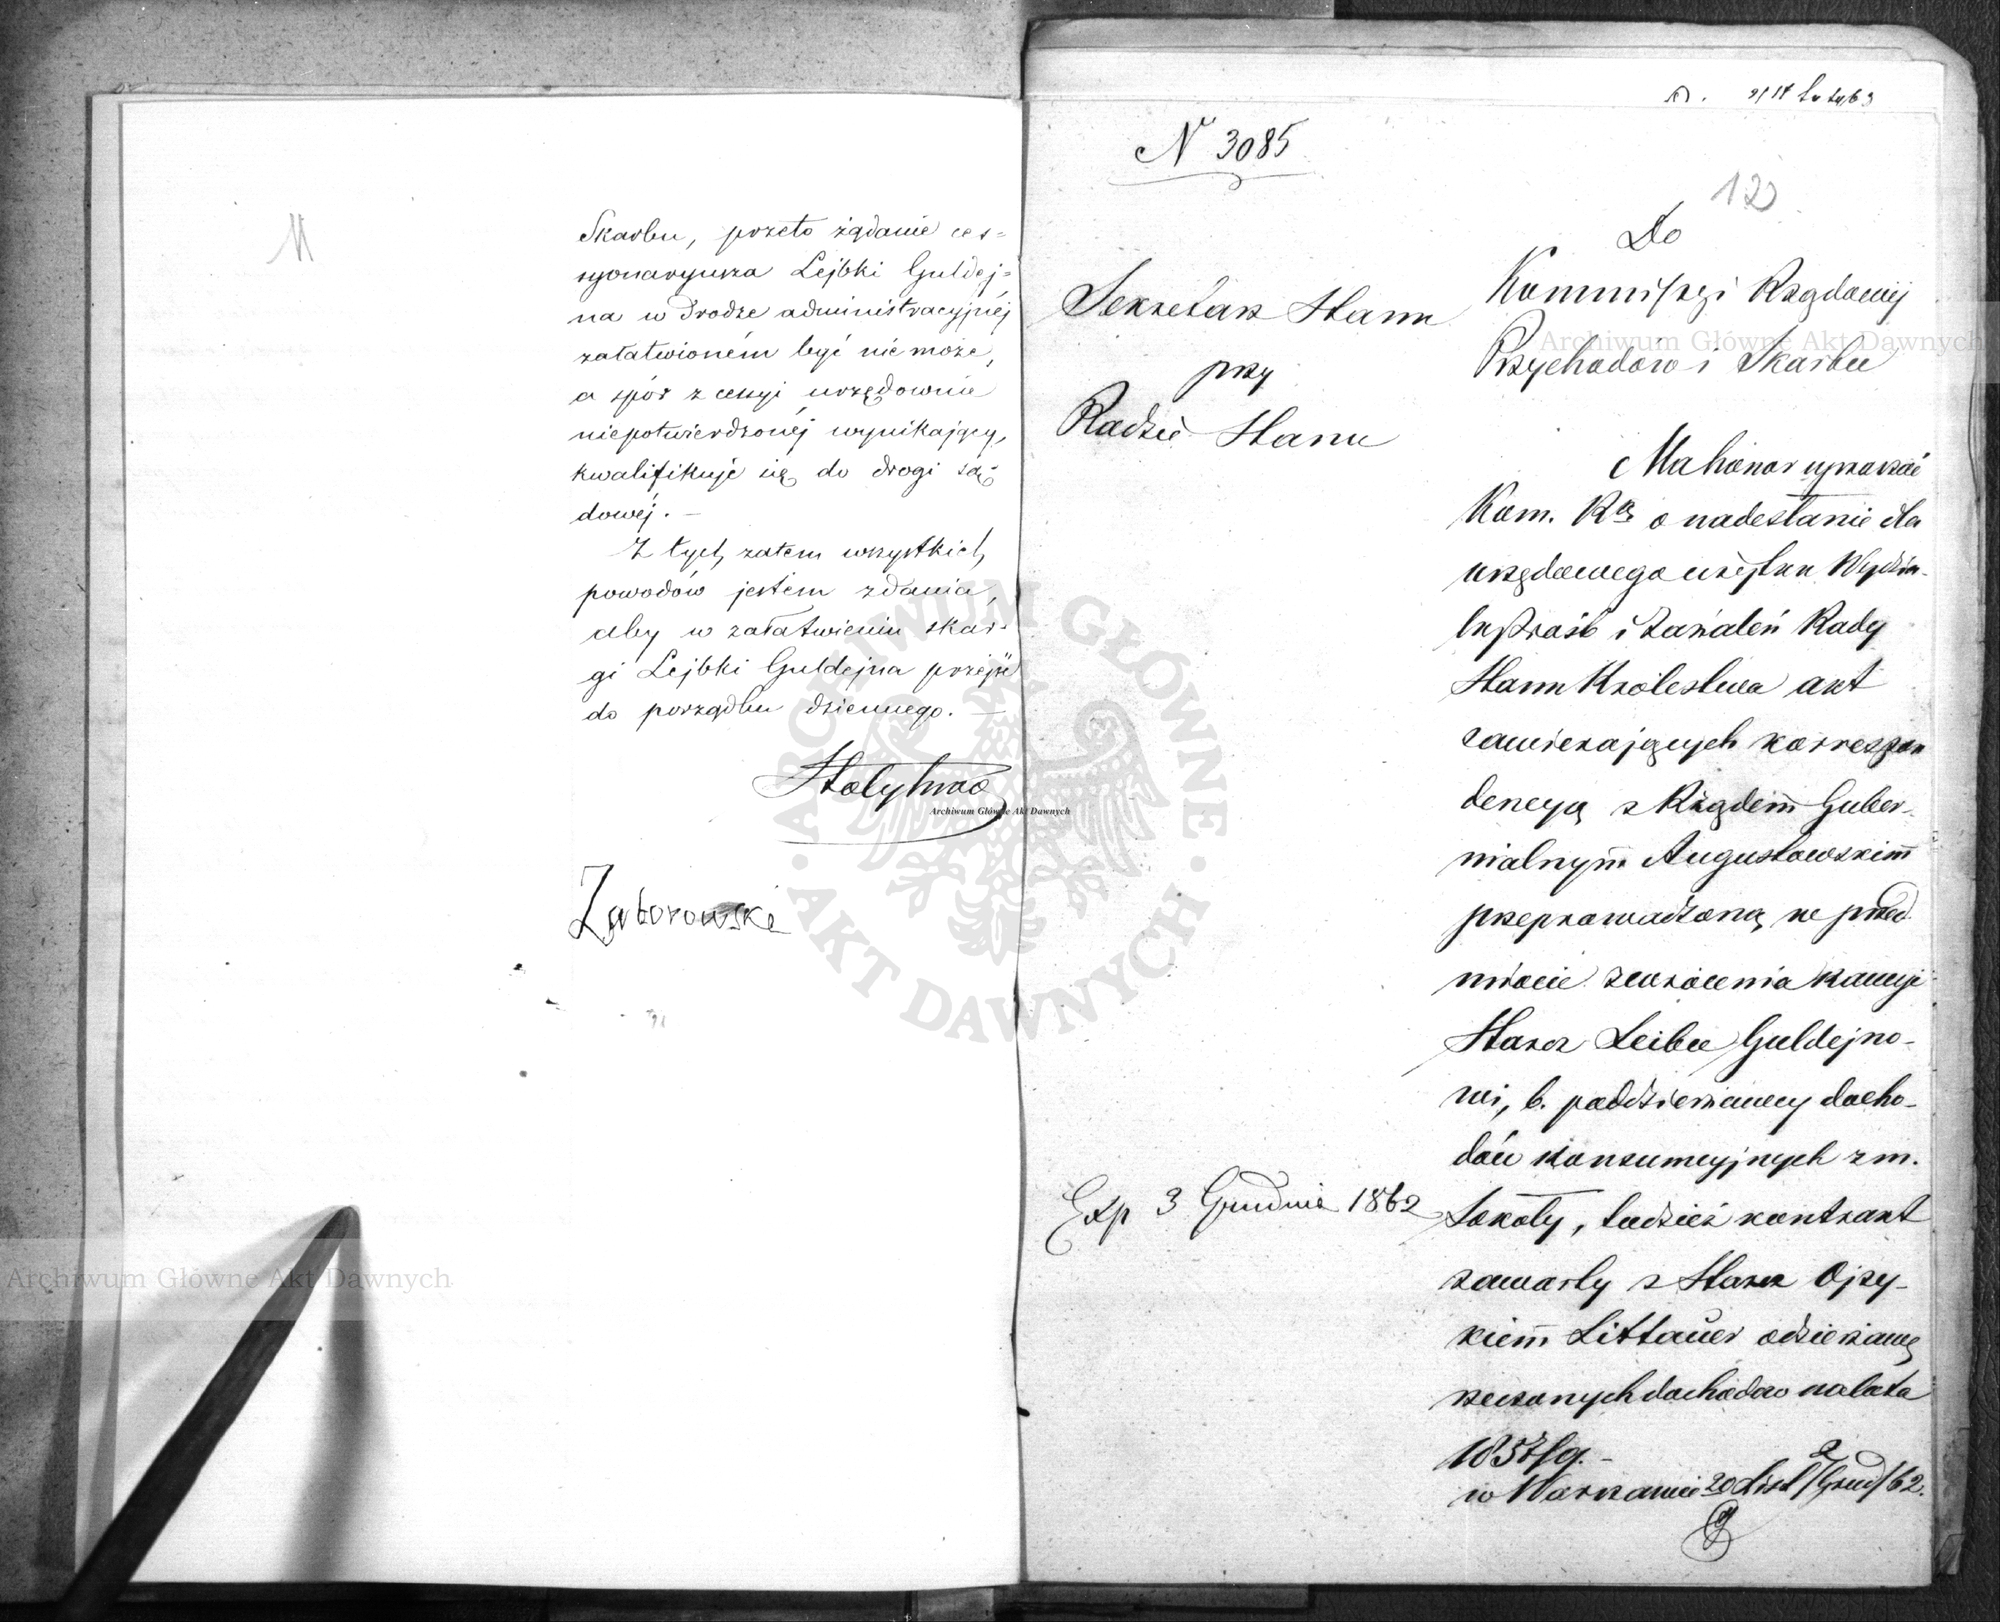 11
Skarbu, przeto żądanie ces-
syonaryusza Lejbki Guldej-
na w drodze administracyjnéj
załatwioném być nie może,
a spór z cessyi urzędownie
niepotwierdzonéj wynikający,
kwalifikuje się do drogi są-
dowéj. —
Z tych zatem wszystkich
powodów jestem zdania,
aby w załatwieniu skar-
gi Lejbki Guldejna przejść
do porządku dziennego. —
Zaborowski
12
N 3085
Do
Kommissyi Rządowej
Przychodów i Skarbu
Sekretarz Stanu
przy
Radzie Stanu
Mam honor upraszać
Kom. Rą o nadesłanie dla
urzędowego użytku Wydzia-
łu Próśb i Zażaleń Rady
Stanu Królestwa akt
zawierających korrespon
dencyą z Rządem Guber-
nialnym Augustowskim
przeprowadzoną w przed
miocie zwrócenia kaucyi
Starz Leibie Guldejno-
wi, b. poddzierżawcy docho-
dów konsumcyjnych z m.
Sokoły, tudzież kontrakt
zawarty z Starz Ojzy-
kiem Littauer o dzierżawę
rzeczonych dochodów na lata
1857/9. -
w Warszawie 20 List/2 Grud/62.
Exp 3 Grudnia 1862
Archiwum Główne Akt Dawnych
Archiwum Główne Akt Dawnych
Archiwum Główne Akt Dawnych
ARCHIWUM GŁÓWNE · AKT DAWNYCH ·